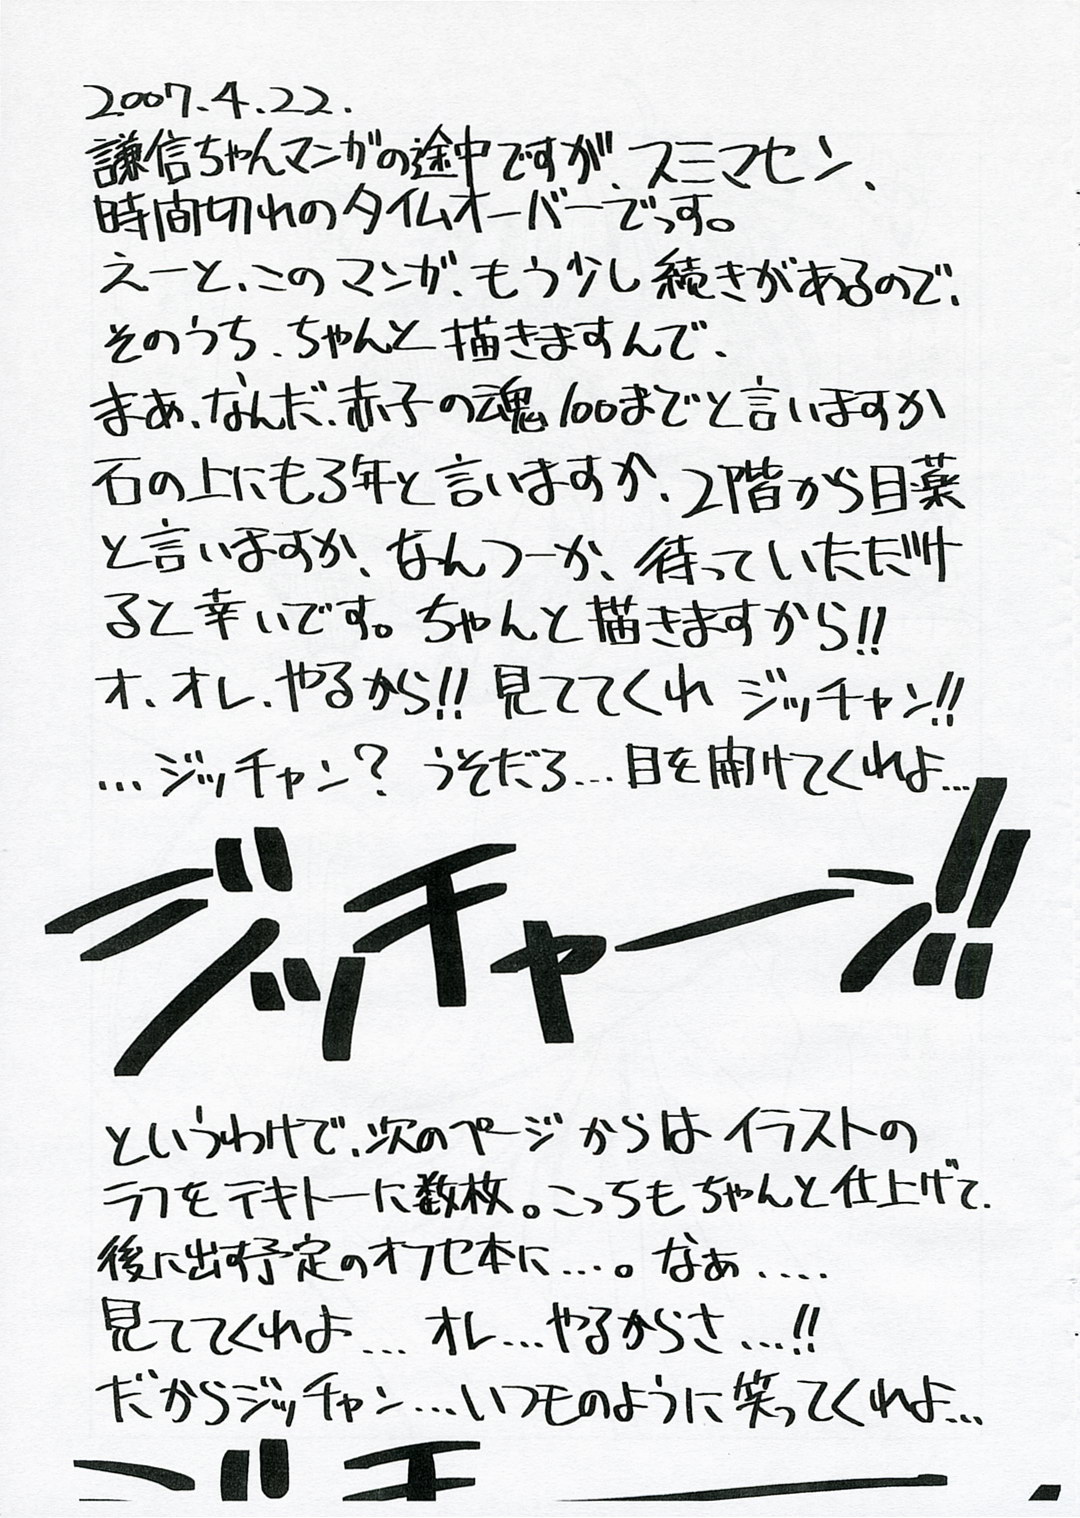 2007.4.22.
謙信ちゃんマンガの途中ですが、スミマセン、
時間切れのタイムオーバーでっす。
えーと、このマンガ、もう少し続きがあるので、
そのうち、ちゃんと描きますんで、
まあ、なんだ、赤子の魂100までと言いますか
石の上にも3年と言いますか、2階から目薬
と言いますか、なんつーか、待っていただけ
ると幸いです。ちゃんと描きますから!!
オ、オレ、やるから!! 見ててくれ ジッチャン!!
…ジッチャン? うそだろ…目を開けてくれよ…
ジッチャーン!!
というわけで、次のページからはイラストの
ラフをテキトーに数枚。こっちもちゃんと仕上げて、
後に出す予定のオフセ本に…。なぁ‥‥
見ててくれよ…オレ…やるからさ…!!
だからジッチャン…いつものように笑ってくれよ…